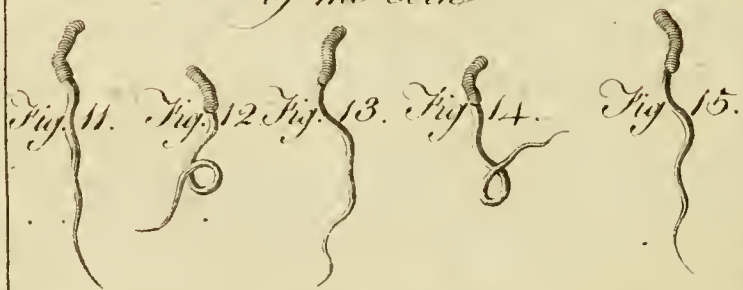 Fig. 11. Fig. 12 Fig. 13. Fig 14. Fig 15.